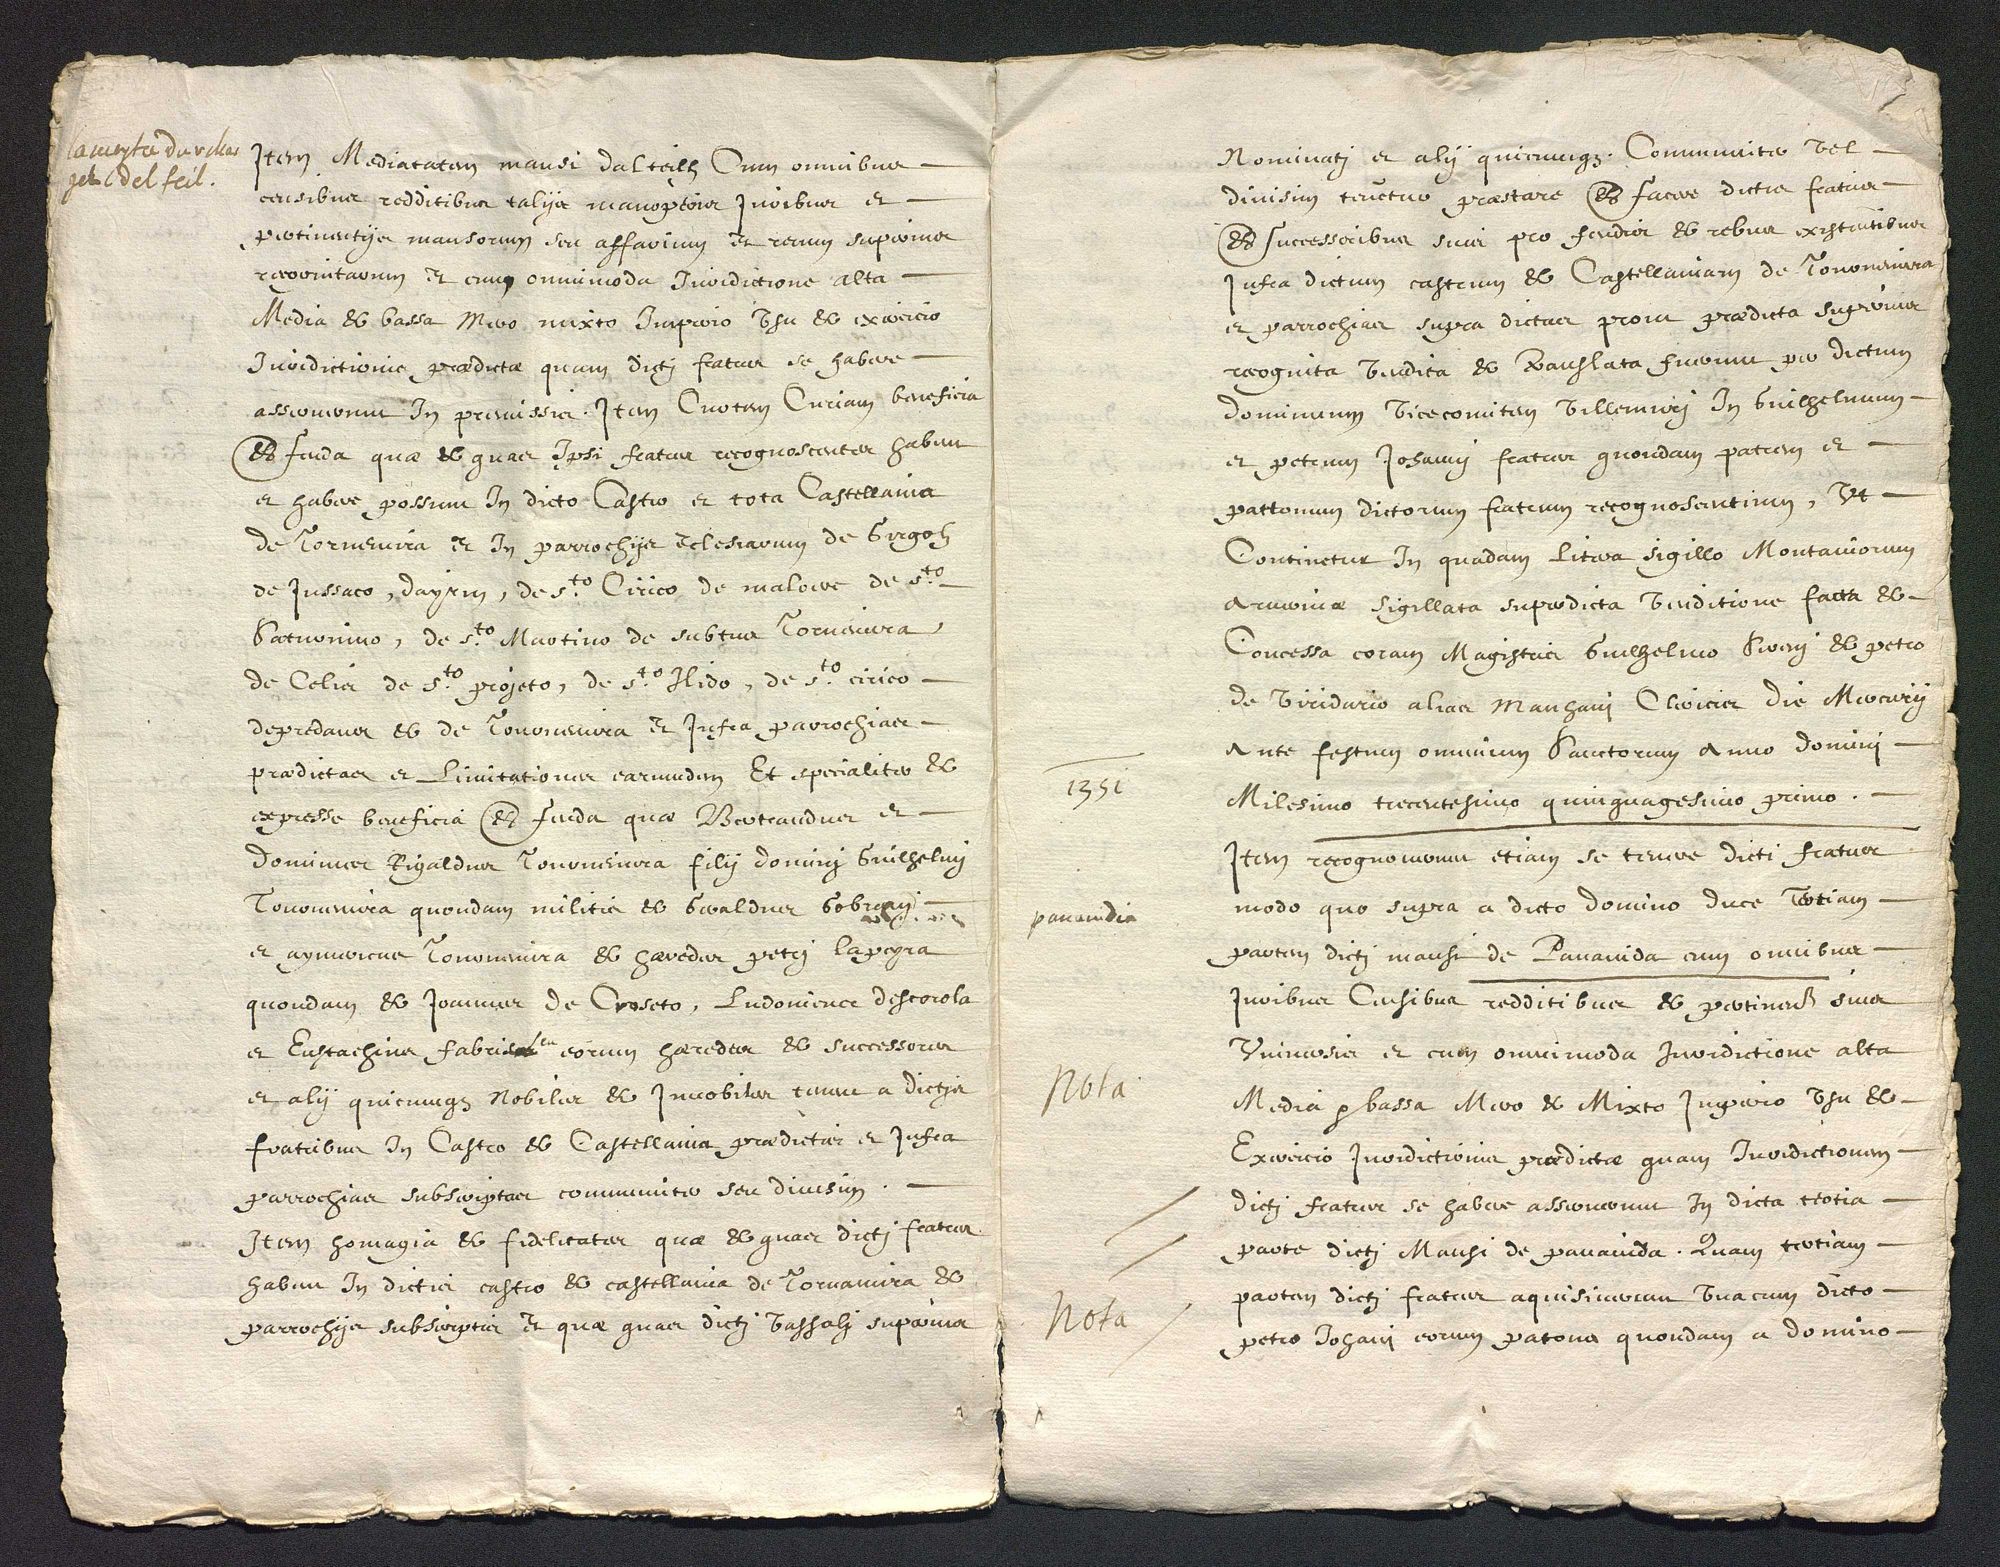 la moytie du vilar
gel del feil.
Item Mediatatem mansi dalteilh Cum omnibus
censibus redditibus talijs manoptris Juribus et
pertinentijs mansorum seu affarium et rerum superius
recognitarum et cum omnimoda Jurisdictione alta
Media & bassa Mero mixto Imperio Usu & exercicio
Jurisdictionis prædictæ quam dictj fratres se habere
asseruerunt In premissis. Item Cuotam Curiam beneficia
& feuda quæ & quas Ipsi fratres recognoscentes habent
et habere possunt In dicto Castro et tota Castellania
de Tornemira et In parrochijs Eclesiarum de Girgolz
de Jussaco, dayrin, de s.to Cirico de malorse de s.to
Saturnino, de s.to Martino de subtus Tornemira
de Celis de s.to projeto, de s.to Ilido, de s.to cirico
depredans & de Tornemira et Infra parrochias
prædictas et Limitationes earumdem Et specialiter &
expresse beneficia & feuda quæ Bertrandus et
Dominus Rigaldus Tornemira filij dominj Guilhelmj
Tornemira quondam militis & Geraldus Gobrenj
et aymericus Tornemira & hæredes petrj lapeyra
quondam & Joannes de Croseto, Ludouicus descorola
et Eustachius fabris seu eorum hæredes & successores
et alij quicumq3 Nobiles & Innobiles tenent a dictis
fratribus In Castro & Castellania prædictis et Infra
parrochias subscriptas communiter seu diuisim.
Item homagia & fidelitates quæ & quas dictj fratres
habent In dictis castro & castellania de Tornamira &
parrochijs subscriptis et quæ quas dictj Vassalj superius
Nominatj et alij quicumq3. Communiter Vel
diuisim tenentur præstare & facere dictis fratribus
& successoribus suis pro feudis & rebus existentibus
Infra dictum castrum & Castellaniam de Tornemira
et parrochias supra dictas prout prædicta superius
recognita Vendita & Translata fuerunt per dictum
dominum Vicecomitem Villemurj In Guilhelmum
et petrum Johannj fratres quondam patrem et
patronum dictorum fratrum recognoscentium, Ut
Continetur In quadam Litera sigillo Montanorum
Aruerniæ sigillata superdicta Venditione facta &
Concessa coram Magistris Guilhelmo Sirerj & petro
de Viridario alias Manhanj Clericis die Mercurij
Ante festum omnium Sanctorum Anno dominj
1351
Milesimo trecentesimo quinquagesimo primo.
Item recognouerunt etiam se tenere dicti fratres
modo quo supra a dicto domino duce Tertiam
panauidia
partem dictj mansi de Panauida cum omnibus
Juribus Censibus redditibus & pertinens suis
Vniuersis et cum omnimoda Jurisdictione alta
Nota
Media & bassa Mero & Mixto Imperio Usu &
Exercicio Jurisdictionis prædictæ quam Jurisdictionem
dictj fratres se habere asseruerunt In dicta tertia
parte dictj Mansi de panauida. Quam tertiam
Nota
partem dictj fratres aquisiuerunt Vna cum dicto
petro Johanj eorum patruus quondam a domino